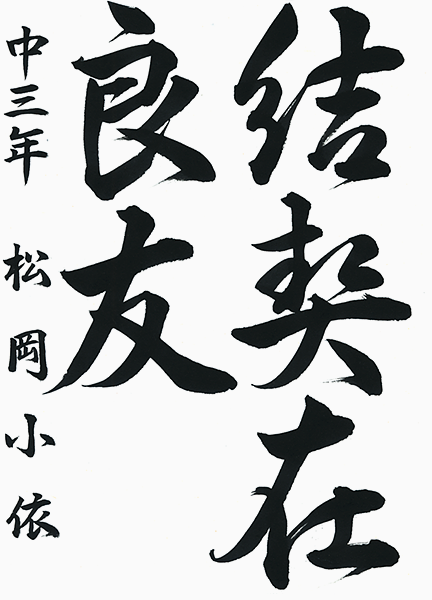 結契在
良友
中三年 松岡小依